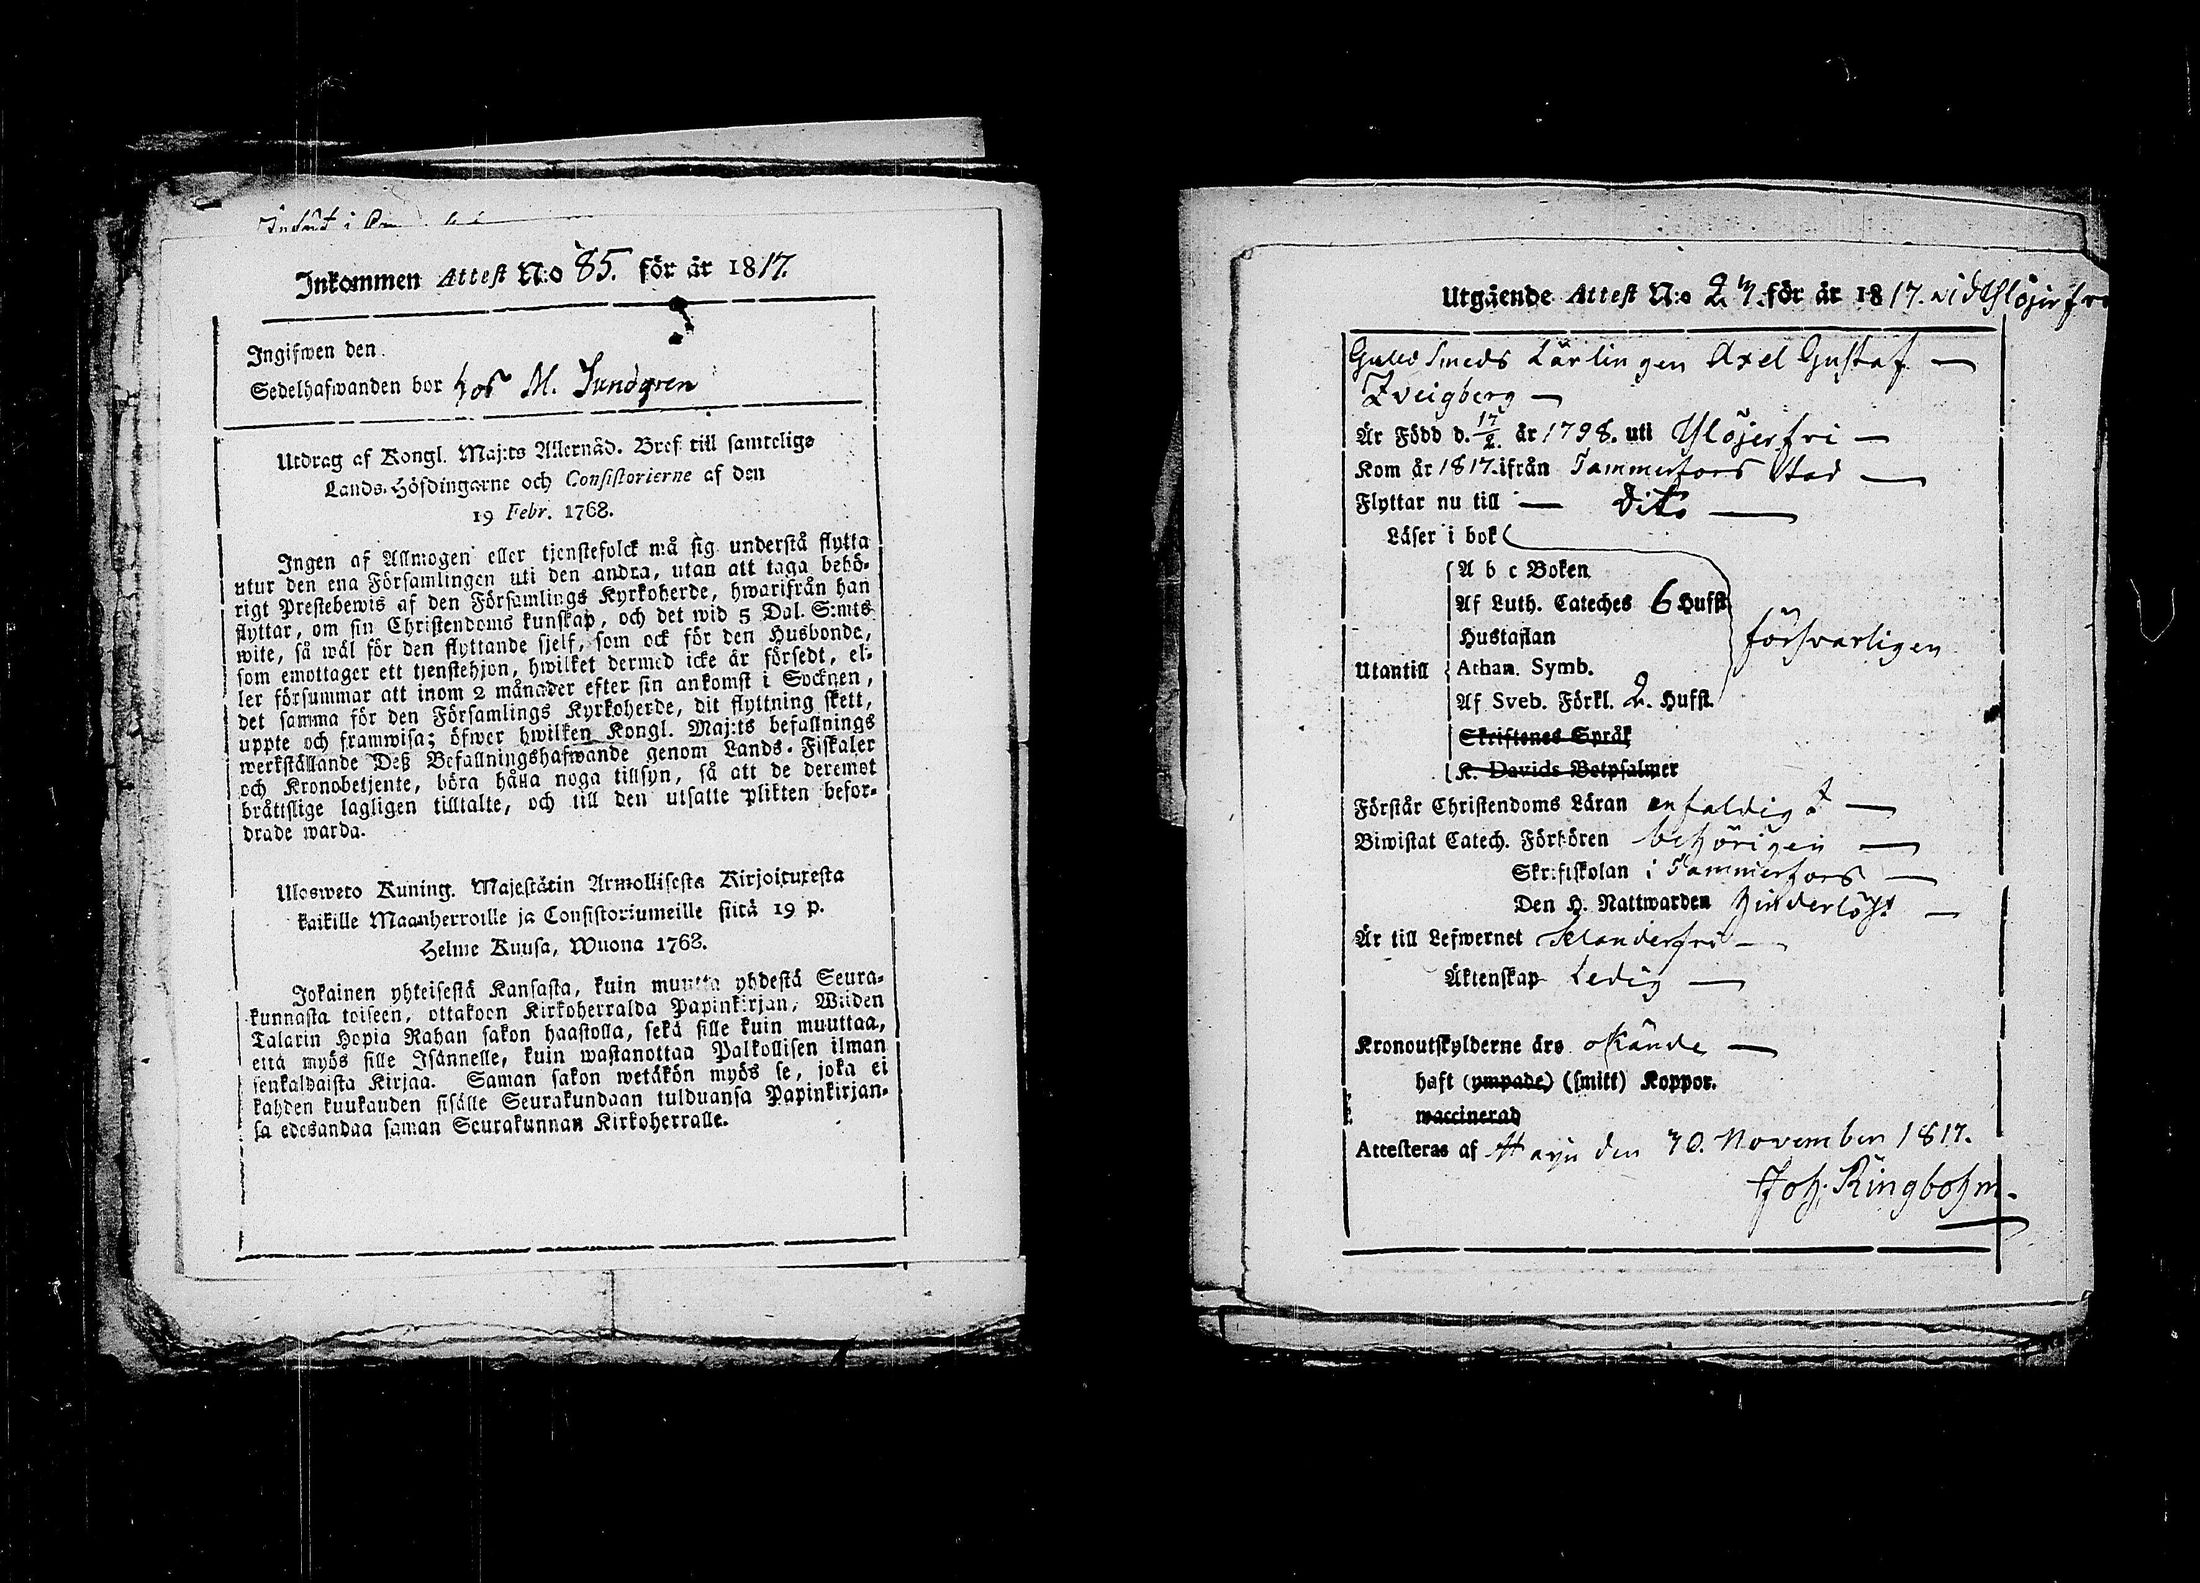 Inkommen Attest N:o 85. för år 1817.
Ingifwen den
Sedelhafwanden bor hos M. Sundgren
Utdrag af Kongl. Maj:ts Allernåd. Bref till samtelige
Lands-Höfdingarne och Consistorierne af den
19 Febr. 1768.
Ingen af Allmogen eller tjenstefolck må sig understå flytta
utur den ena Församlingen uti den andra, utan att taga behö-
rigt Prestebewis af den Församlings Kyrkoherde, hwarifrån han
flyttar, om sin Christendoms kunskap, och det wid 5 Dal. S:mts
wite, så wäl för den flyttande sjelf, som ock för den Husbonde,
som emottager ett tjenstehjon, hwilket dermed icke är försedt, el-
ler försummar att inom 2 månader efter sin ankomst i Socknen,
det samma för den Församlings Kyrkoherde, dit flyttning skett,
uppte och framwisa; öfwer hwilken Kongl. Maj:ts befallnings
werkställande Deß Befallningshafwande genom Lands-Fiskaler
och Kronobetjente, böra hålla noga tillsyn, så att de deremot
bråttslige lagligen tilltalte, och till den utsatte plikten befor-
drade warda.
Ulosweto Kuning. Majestätin Armollisesta Kirjoituxesta
kaikille Maanherroille ja Consistoriumeille siitä 19 p.
Helme Kuusa, Wuona 1768.
Jokainen yhteisestä Kansasta, kuin muutta yhdestä Seura-
kunnasta toiseen, ottakoon Kirkoherralda Papinkirjan, Wiiden
Talarin Hopia Rahan sakon haastolla, sekä sille kuin muuttaa,
että myös sille Isännelle, kuin wastanottaa Palkollisen ilman
senkalhaista Kirjaa. Saman sakon wetäkön myös se, joka ei
kahden kuukauden sisälle Seurakundaan tulduansa Papinkirjan-
sa edesandaa saman Seurakunnan Kirkoherralle.
Utgående Attest N:o 27. för år 1817. vid Ylöjerfvi
Guld Smeds Lärlingen Axel Gustaf —
Zveigberg —
Är Född d. 17/2. år 1798. uti Ylöjerfvi —
Kom år 1817. ifrån Tammerfors Stad —
Flyttar nu till — dito —
Läser i bok
A b c Boken
Af Luth. Cateches 6 Hufst.
Hustaflan
försvarligen
Utantill Athan. Symb.
Af Sveb. Förkl. 2. Hufst.
Skriftenes Språk
K. Davids Botpsalmer
Förstår Christendoms Läran enfaldigt —
Biwistat Catech. Förhören behörigen —
Skriftskolan i Tammerfors —
Den H. Nattwarden hinderlöst —
Är till Lefwernet Klanderfri —
Äktenskap Ledig —
Kronoutskylderne äro okände —
haft (ympade) (smitt) Koppor.
waccinerad
Attesteras af den 30. November 1817.
Joh. Ringbohm.